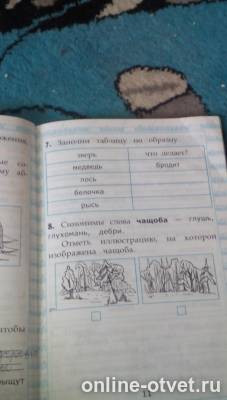 7. Заполни таблицу по образцу
зверь что делает?
медведь бродит
лось
белочка
рысь
8. Синонимы слова чащоба — глушь,
глухомань, дебри.
Отметь иллюстрацию, на которой
изображена чащоба.
чтобы
рыщут
11
online-otvet.ru